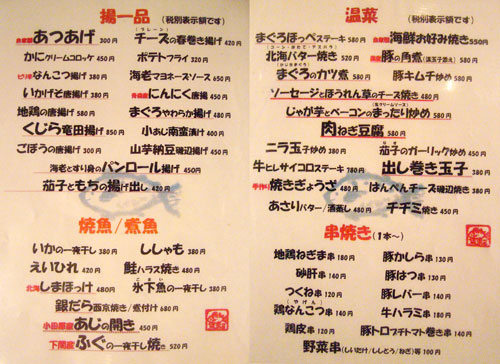 揚一品 (税別表示額です)
兵庫産 あつあげ 300円
チーズの春巻き揚げ 420円
かにクリームコロッケ 450円
ポテトフライ 320円
ピリ辛 なんこつ揚げ 380円
海老マヨネーズソース 650円
いかげそ唐揚げ 380円
青森産 にんにく唐揚 450円
地鶏の唐揚げ 580円
まぐろやわらか揚げ 480円
くじら竜田揚げ 850円
小あじ南蛮漬け 400円
ごぼうの唐揚げ 300円
山芋納豆磯辺揚げ 450円
海老とすり身のパンロール揚げ 450円
茄子ともちの揚げ出し 420円
焼魚/煮魚
いかの一夜干し 380円
ししゃも 380円
えいひれ 420円
鮭ハラス焼き 480円
北海 しまほっけ 480円
氷下魚の一夜干し 380円
銀だら西京焼き/煮付け 680円
小田原産 あじの開き 450円
下関産 ふぐの一夜干し焼き 520円
温菜 (税別表示額です)
まぐろほっぺステーキ 580円
兵庫産 海鮮お好み焼き 550円
(コーン・ほたて・アスパラ)
北海バター焼き 520円
豚の角煮(温玉子添え) 580円
まぐろのカツ煮 580円
豚キムチ炒め 580円
ソーセージとほうれん草のチーズ焼き 480円
(生クリームソース)
じゃが芋とベーコンのまったり炒め 580円
肉ねぎ豆腐 580円
ニラ玉子炒め 380円
茄子のガーリック炒め 450円
牛ヒレサイコロステーキ 780円
出し巻き玉子 380円
手作り 焼きぎょうざ 480円
はんぺんチーズ磯辺焼き 380円
あさりバター/酒蒸し 480円
チヂミ焼き 450円
串焼き(1本〜)
地鶏ねぎま串 180円
豚かしら串 130円
砂肝串 140円
豚はつ串 130円
つくね串 120円
豚レバー串 140円
(やげん)
鶏なんこつ串 140円
牛ハラミ串 180円
鶏皮串 130円
豚トロプチトマト巻き串 140円
野菜串(しいたけ/ししとう/ねぎ)等 100円